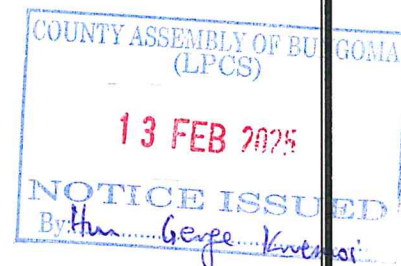 COUNTY ASSEMBLY OF BUNGOMA
(LPCS)
13 FEB 2025
NOTICE ISSUED
By: Hon George